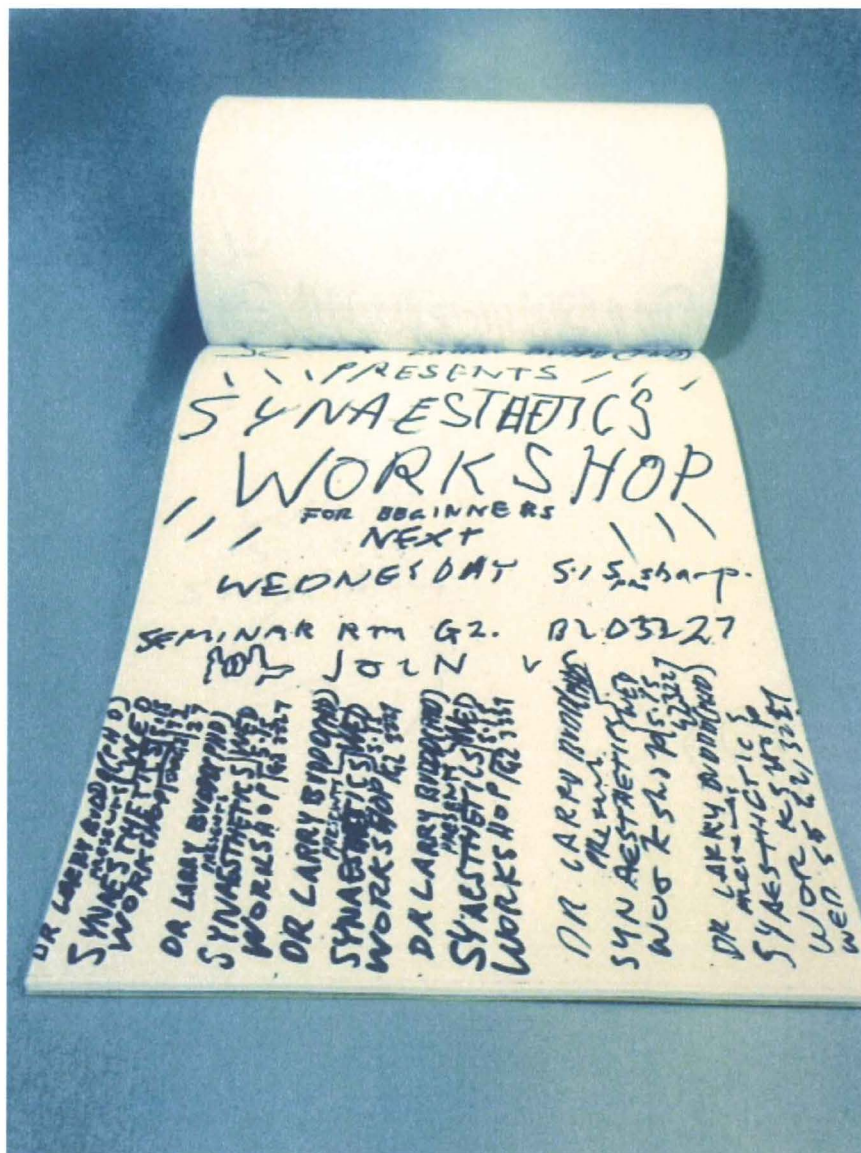 LARRY BUDD(PHD)
PRESENTS
SYNAESTHETICS
WORKSHOP
FOR BEGINNERS
NEXT
WEDNESDAY 5.15pm sharp.
SEMINAR Rm G2. BLD3227
JOIN
DR LARRY BUDD(PHD)
PRESENTS
SYNAESTHETICS WED
WORKSHOP
DR LARRY BUDD(PHD)
PRESENTS
SYNAESTHETICS WED
WORKSHOP 5.15 G2 3227
DR LARRY BUDD(PHD)
PRESENTS
SYNAESTHETICS WED
WORKSHOP 5.15 G2 3227
DR LARRY BUDD(PHD)
PRESENT
SYAESTHETICS WED
WORKSHOP 5.15 G2 3227
DR LARRY BUDD(PHD)
SYNAESTHETICS WED
WORKSHOP 5.15
DR LARRY BUDD(PHD)
SYAESTHETICS
WORKSHOP
WED 5.15 G2/3227
WED